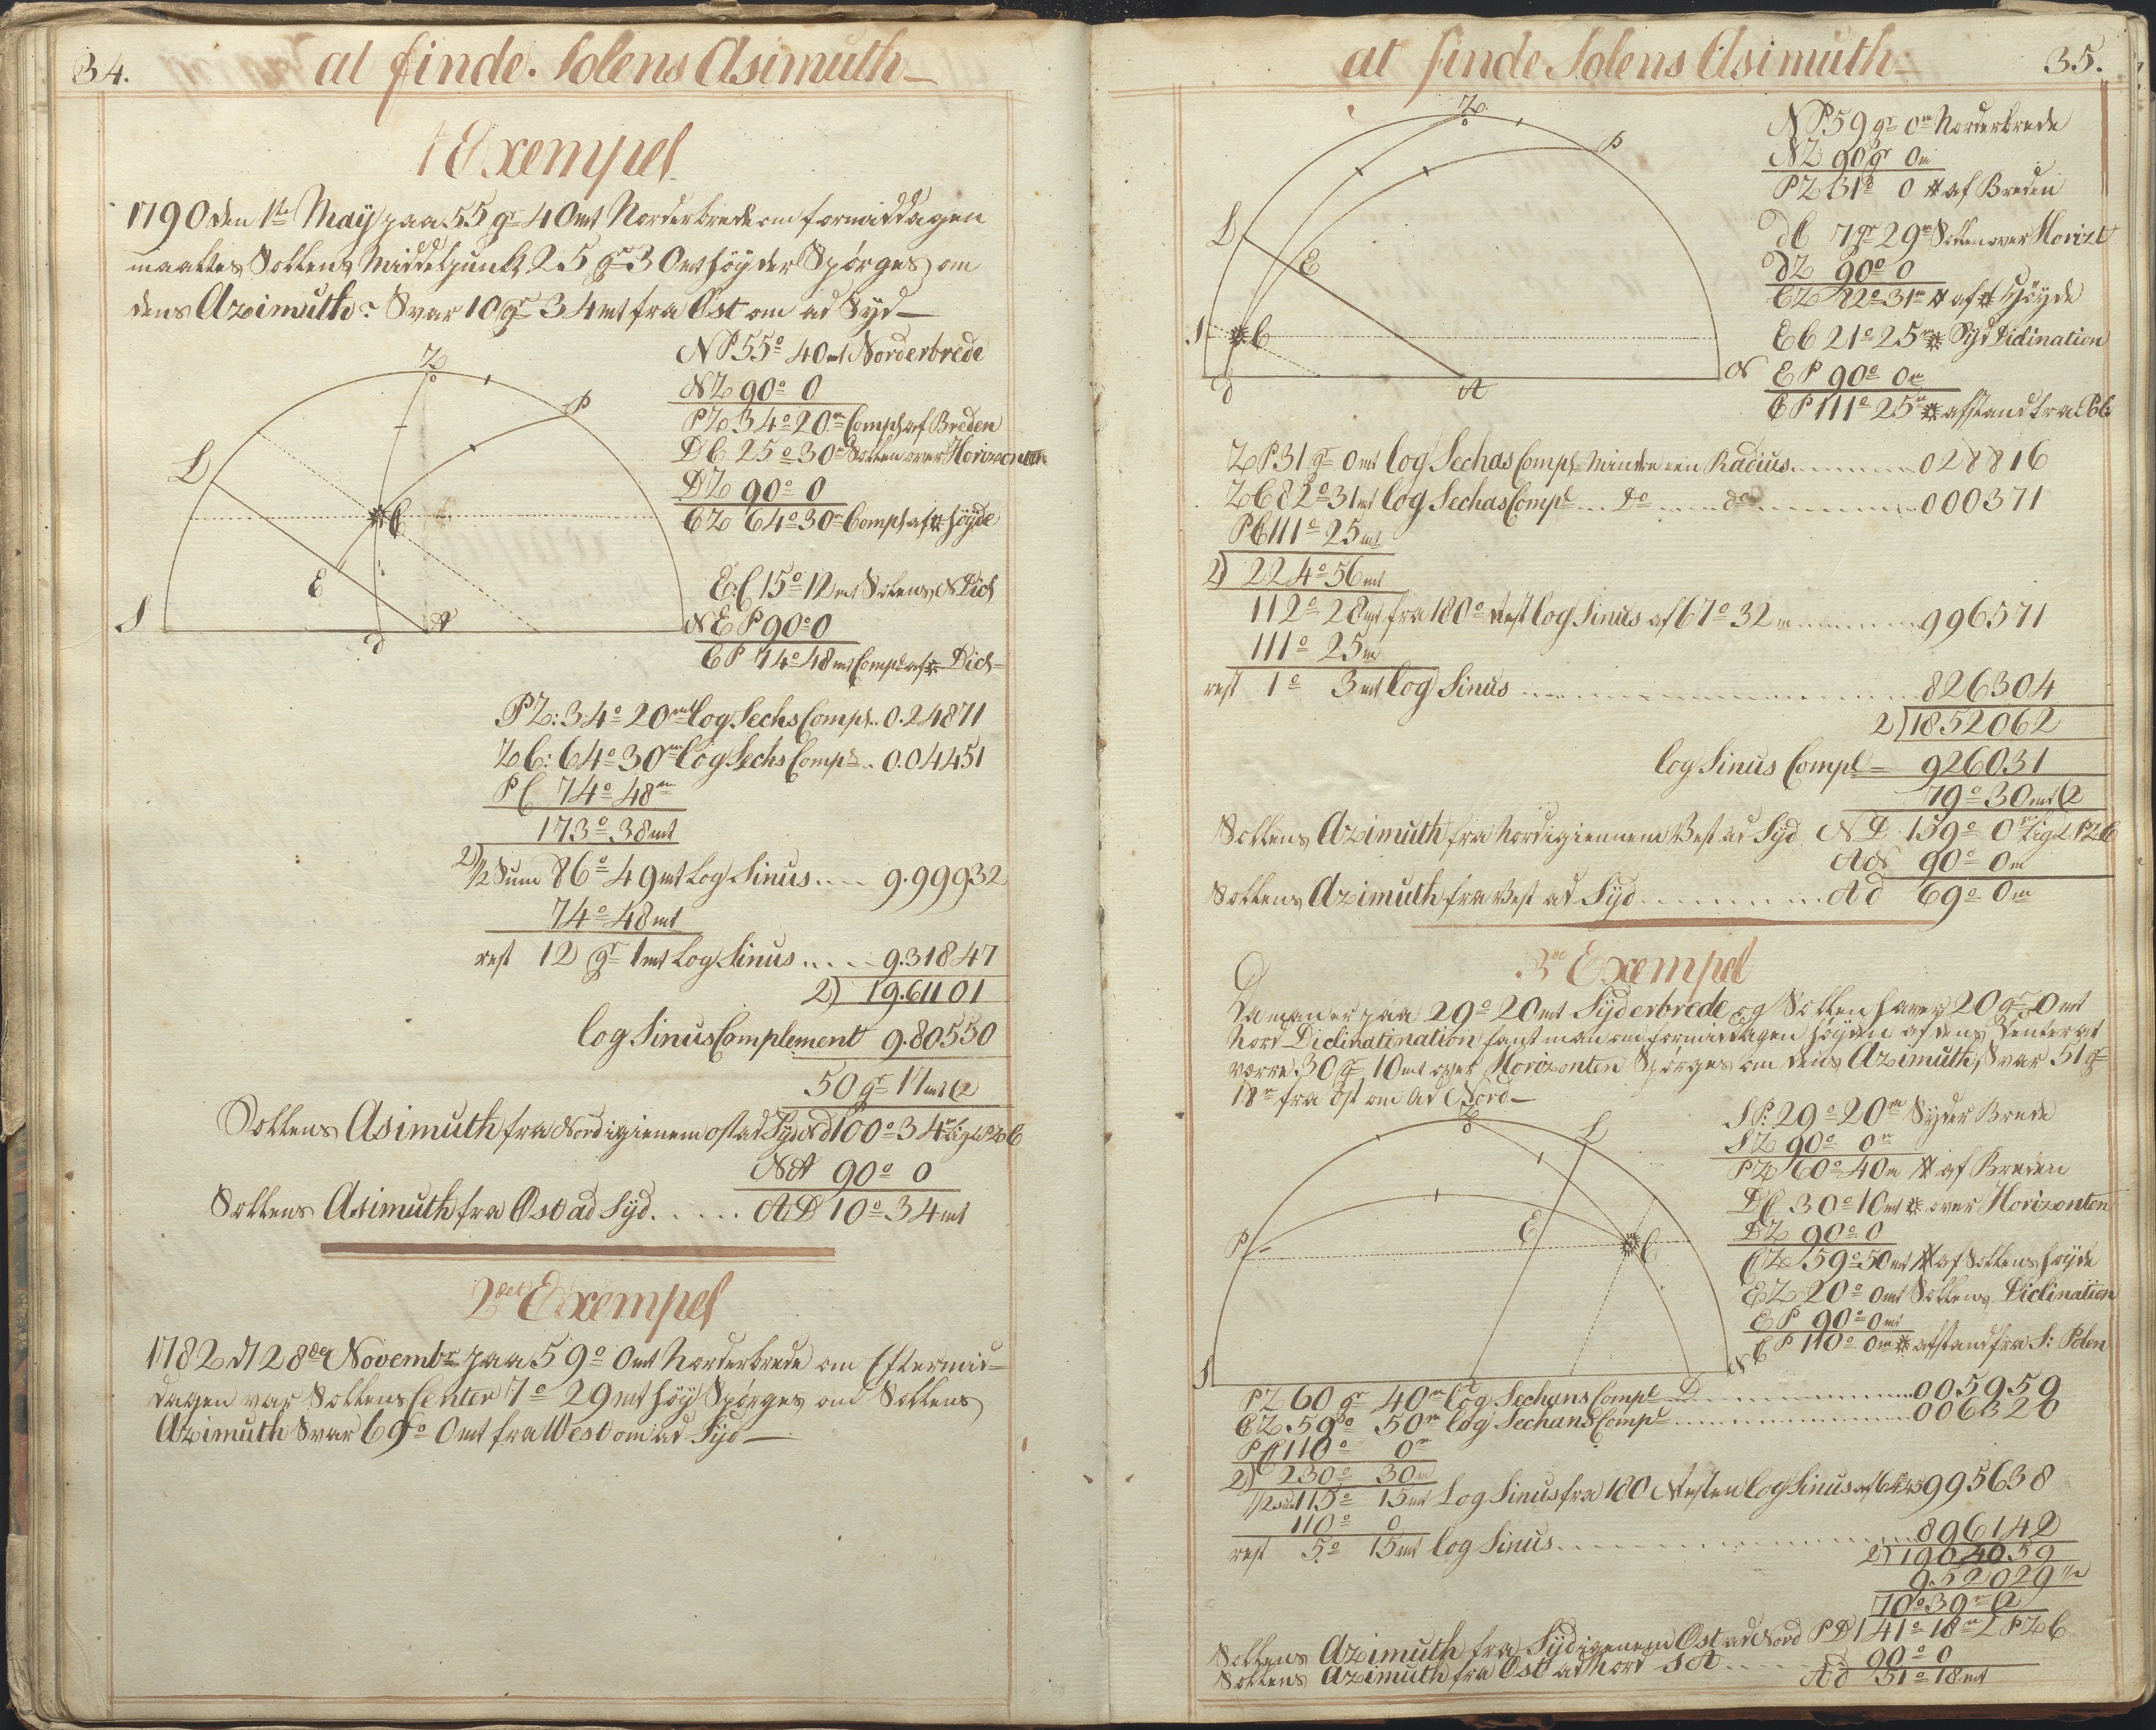 34.
at finde Solens Asimuth
1 Exempel
1790 den 1ste May paa 55 gr 40 mt Norderbrede om formiddagen
maaltes Sollens Middelpunkt 25 gr 30 mt höy der Spörges om
dens Azimuth? Svar 10 gr 34 mt fra Öst om ad Syd
Z
P
L
C
E
S
A
d
NP 55° 40 mt Norderbrede
NZ 90° 0
PZ 34° 20m Compl af Breden
DC 25° 30m Sollen over Horizonten
DZ 90° 0
CZ 64° 30m Compl af höyde
EC 15° 12 mt Solens N Dicl
N EP 90° 0
CP 74° 48 mt Compl af Dicl
PZ: 34° 20mt log Sechs Compl.. 0.24871
ZC: 64° 30m log Sechs Compl.. 0.04451
PC 74° 48m
173° 38 mt
2) ½ Sum 86° 49 mt Log Sinus.... 9.99932
74° 48 mt
rest 12 gr 1 mt Log Sinus.... 9.31847
2) 19.61101
log Sinus Complement 9.80550
50 gr 17 mt (2
Sollens Asimuth fra Nord igienem ost ad Syd Nd 100° 34m lig PZC
NA 90° 0
Sollens Asimuth fra Öst ad Syd...... AD 10° 34 mt
2det Exempel
1782 d 28de Novembr paa 59° 0 mt Norderbrede om Eftermid-
dagen var Sollens Center 7° 29 mt höy Spörges om Sollens
Azimuth Svar 69° 0 mt fra West om ad Syd
at finde Solens Asimuth
35.
Z
P
L
E
S
C
d
A
N
NP 59 gr 0m Norderbrede
NZ 90 gr 0m
PZ 31° 0 af Breden
dC 7 gr 29m Sollen over Horizt
dZ 90° 0
CZ 82° 31m af höyde
EC 21° 25m Syd Diclination
EP 90° 0m
CP 111° 25m afstand fra Pol:
ZP 31 gr 0 mt log Sechas Compl Mindre een Radius..... 028816
ZC 82° 31 mt log Sechas Compl... do.... do..... 000371
PC 111° 25 mt
2) 224° 56 mt
112° 28 mt fra 180° Rest log Sinus af 67° 32 m...... 996571
111° 25m
rest 1° 3 mt log Sinus..... 826304
2) 1852062
log Sinus Compl 926031
79° 30 mt (2
Sollens Azimuth fra Nord igiennem Vest ad Syd ND 159° 0m lig PZC
AN 90° 0m
Sollens Azimuth fra Vest ad Syd.......... Ad 69° 0m
3de Exempel
Da man er paa 29° 20 mt Syderbrede og Sollen haver 20 gr 0 mt
Nord Diclinatination fant man om formiddagen höyden af dens Center at
være 30 gr 10 mt over Horizonten Spörges om dens Azimuth, Svar 51 gr
18m fra Öst om ad Nord
Z
L
P
E
C
S
D
N
SP: 29° 20m Syder Brede
SZ 90° 0m
PZ 60° 40m af Breden
DC 30° 10 mt over Horizonten
DZ 90° 0
CZ 59° 50 mt af Sollens höyde
EZ 20° 0 mt Sollens Diclination
EP 90° 0 mt
CP 110° 0m afstand fra S: Polen
PZ 60 gr 40m log Sechans Compl........ 005959
CZ 59° 50m log Sechans Compl........ 006320
PC 110° 0m
2) 230° 30m
½ Sum 115° 15 mt Log Sinus fra 180 Resten log Sinus af 64° 45 995638
110° 0
rest 5° 15 mt log Sinus........ 896142
2) 1904059
9.52029 ½
70° 39m (2
Sollens Azimuth fra Syd igenem Öst ad Nord PD 141° 18m PZC
90° 0
Sollens Azimuth fra Öst ad Nord SA..... Ad 51° 18 mt